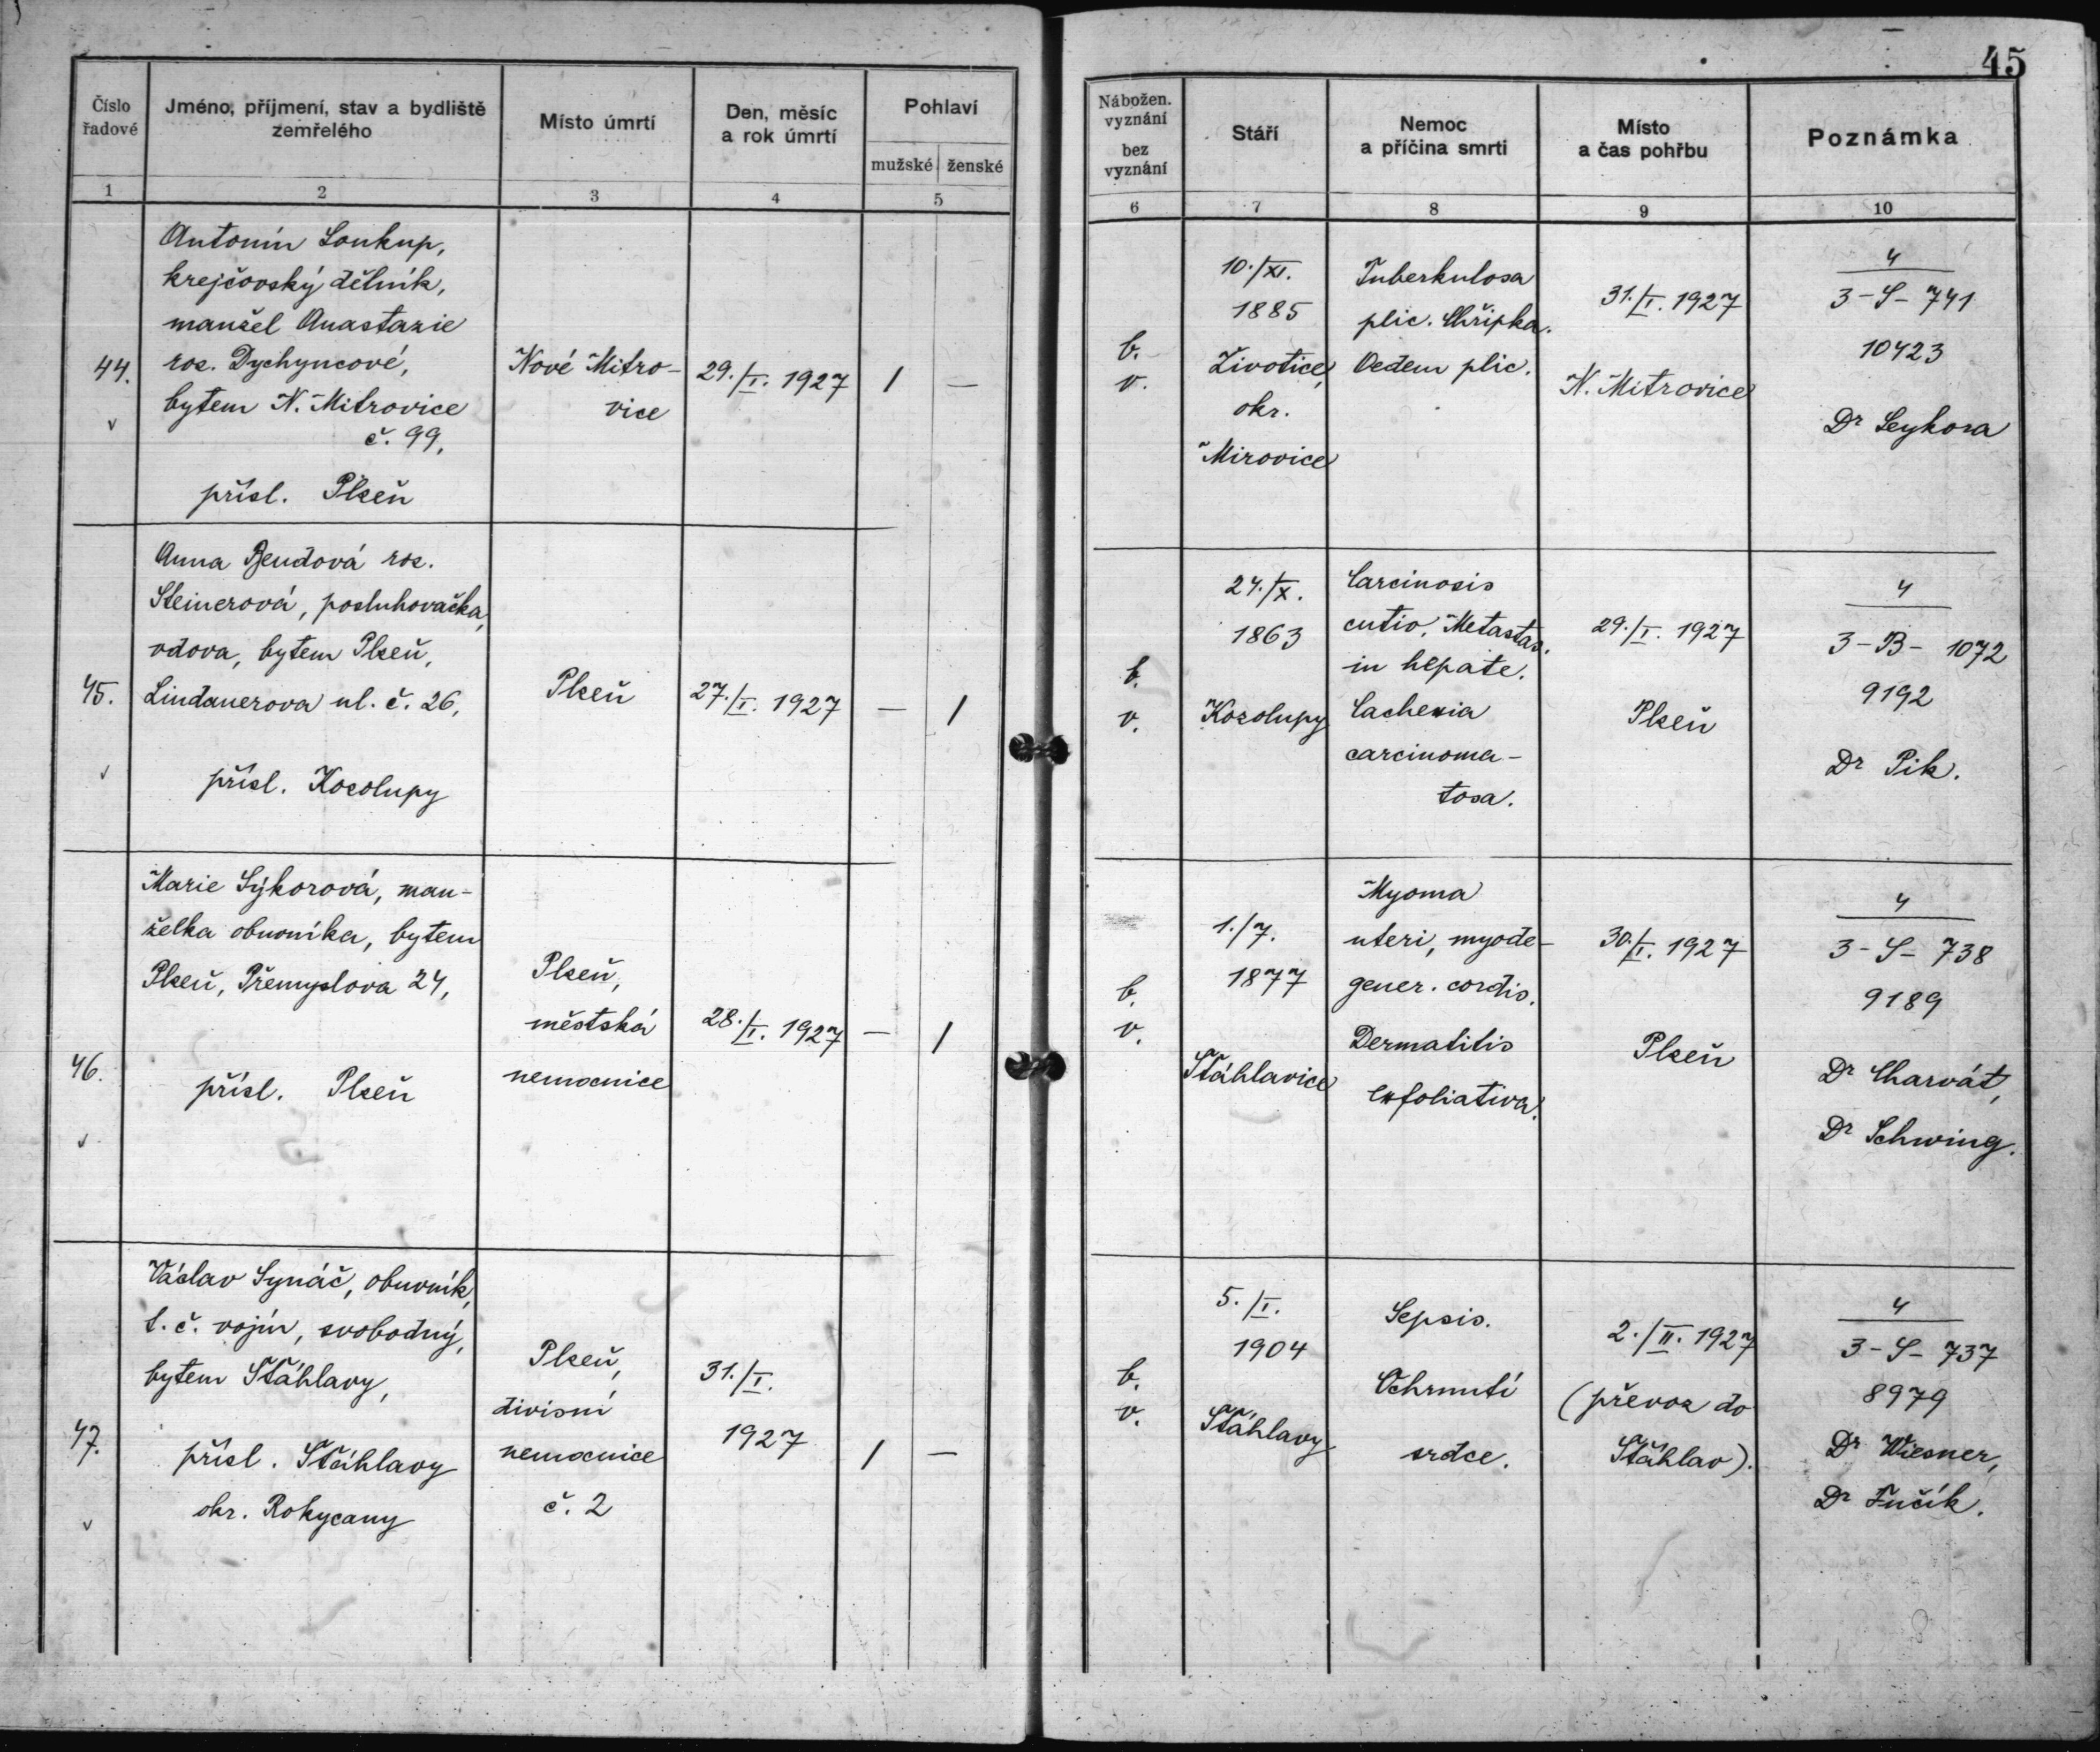 45
Číslo
řadové
Jméno, příjmení, stav a bydliště
zemřelého
Místo úmrtí
Den, měsíc
a rok úmrtí
Pohlaví
mužské ženské
Nábožen.
vyznání
bez
vyznání
Stáří
Nemoc
a příčina smrti
Místo
a čas pohřbu
Poznámka
1 2 3 4 5 6 7 8 9 10
44.
v
Antonín Soukup,
krejčovský dělník,
manžel Anastazie
roz. Dychyncové,
bytem N. Mitrovice
č. 99,
přísl. Plzeň
Nové Mitro-
vice
29./I. 1927
/ —
b.
v.
10./XI.
1885
Životice,
okr.
Mirovice
Tuberkulosa
plic. Chřipka.
Oedem plic.
31./I. 1927
N. Mitrovice
4
3-S-741
10423
Dr Seykora
45.
v
Anna Bendová roz.
Steinerová, posluhovačka,
vdova, bytem Plzeň,
Lindauerova ul. č. 26,
přísl. Kozolupy
Plzeň
27./I. 1927
— /
b.
v.
24./X.
1863
Kozolupy
Carcinosis
cutis. Metastas.
in hepate.
Cachexia
carcinoma-
tosa.
29./I. 1927
Plzeň
4
3-B- 1072
9192
Dr Pik.
46.
v
Marie Sýkorová, man-
želka obuvníka, bytem
Plzeň, Přemyslova 24,
přísl. Plzeň
Plzeň,
městská
nemocnice
28./I. 1927
— /
b.
v.
1./7.
1877
Šťáhlavice
Myoma
uteri, myode-
gener. cordis.
Dermatitis
exfoliativa.
30./I. 1927
Plzeň
4
3-S-738
9189
Dr Charvát,
Dr Schwing.
47.
v
Václav Synáč, obuvník,
t. č. vojín, svobodný,
bytem Šťáhlavy,
přísl. Šťáhlavy
okr. Rokycany
Plzeň,
divisní
nemocnice
č. 2
31./I.
1927
/ —
b.
v.
5./I.
1904
Šťáhlavy
Sepsis.
Ochrnutí
srdce.
2./II. 1927
(převoz do
Šťáhlav).
4
3-S-737
8979
Dr Wiesner,
Dr Fučík.